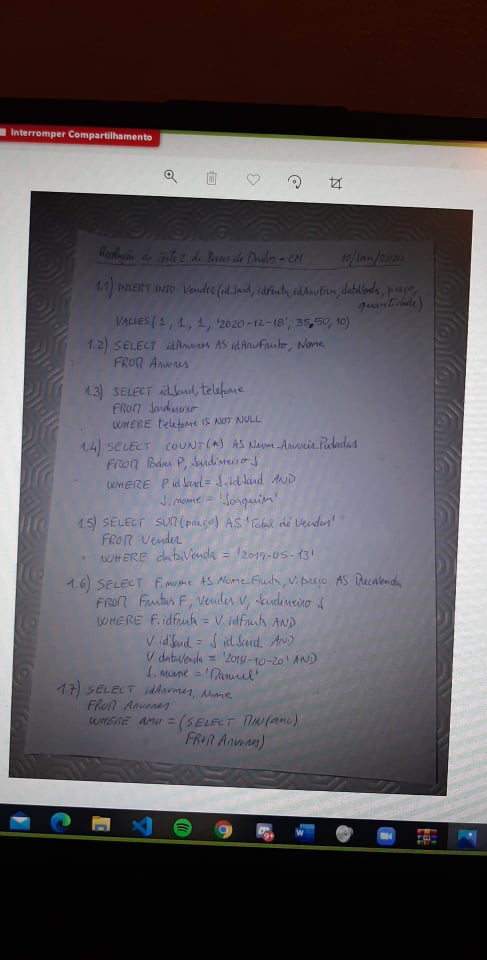 Interromper Compartilhamento
Resolução do Teste 2 de Bases de Dados - CM 10/Jan/2020
1.1) INSERT INTO Vender(idJard, idFruta, idArvFru, dataVenda, preço, quantidade)
VALUES(1, 1, 1, '2020-12-18', 35.50, 10)
1.2) SELECT idArvores AS idArvFruto, Nome
FROM Arvores
1.3) SELECT idJard, telefone
FROM Jardineiro
WHERE telefone IS NOT NULL
1.4) SELECT COUNT(*) AS Num_Arvores_Podadas
FROM Podar P, Jardineiro J
WHERE P.idJard = J.idJard AND
J.nome = 'Joaquim'
1.5) SELECT SUM(preço) AS 'Total de Vendas'
FROM Vender
WHERE dataVenda = '2019-05-13'
1.6) SELECT F.nome AS Nome_Fruta, V.preço AS PrecoVenda
FROM Frutas F, Vender V, Jardineiro J
WHERE F.idFruta = V.idFruta AND
V.idJard = J.idJard AND
V.dataVenda = '2018-10-20' AND
J.nome = 'Manuel'
1.7) SELECT idArvores, Nome
FROM Arvores
WHERE ano = (SELECT MIN(ano)
FROM Arvores)
9+
W